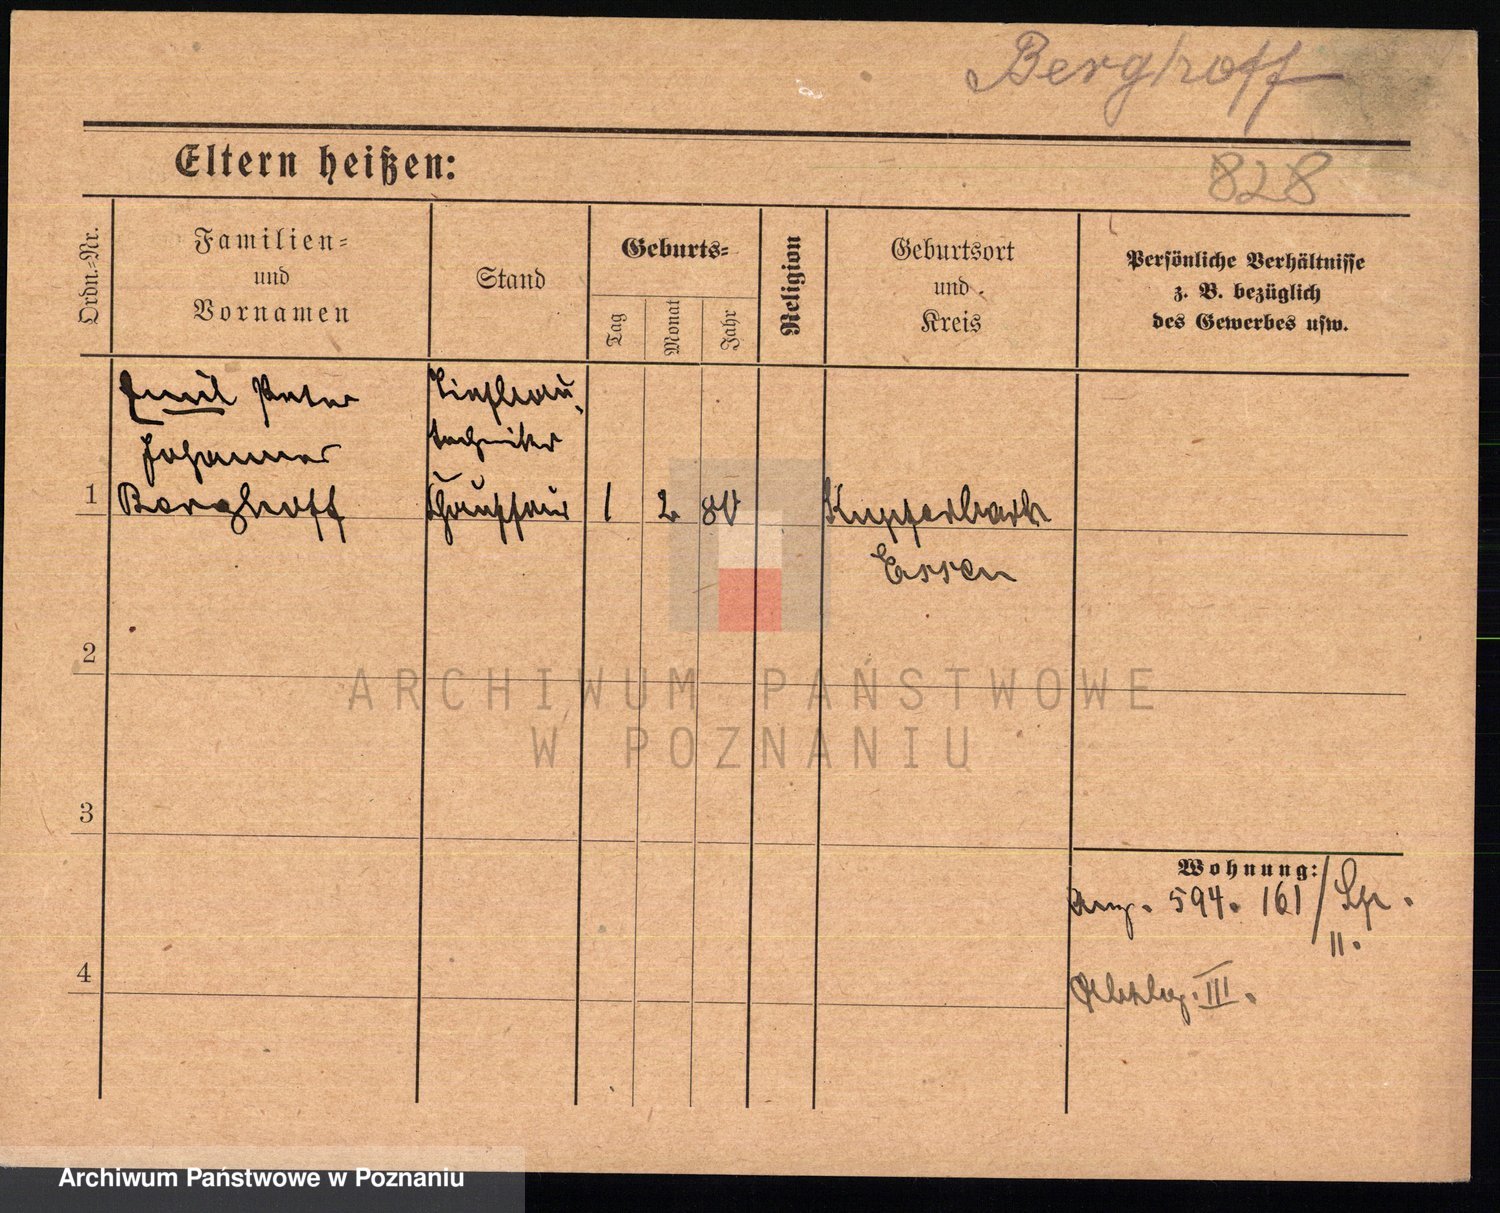 Berghoff
828
Eltern heißen:
Ordn.-Nr.
Familien-
und
Vornamen
Stand
Geburts-
Tag
Monat
Jahr
Religion
Geburtsort
und
Kreis
Persönliche Verhältnisse
z. B. bezüglich
des Gewerbes usw.
Emil Peter
Johannes
Berghoff
Tiefbau
techniker
Chauffeur
1
1 2 80
Kupferbach
Essen
2
3
4
Wohnung:
594. 161/
II.
III.
ARCHIWUM PAŃSTWOWE
W POZNANIU
Archiwum Państwowe w Poznaniu